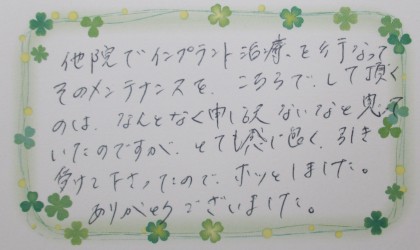 他院でインプラント治療を行なって
そのメンテナンスを、こちらでして頂く
のは、なんとなく申し訳ないなと思って
いたのですが、とても感じ良く、引き
受けて下さったので、ホッとしました。
ありがとうございました。